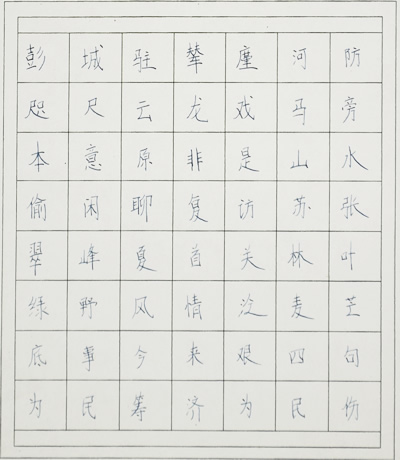 彭城驻辇廑河防
咫尺云龙戏马旁
本意原非是山水
偷闲聊复访苏张
翠峰夏首关林叶
绿野风情泛麦芒
底事今来艰四句
为民筹济为民伤